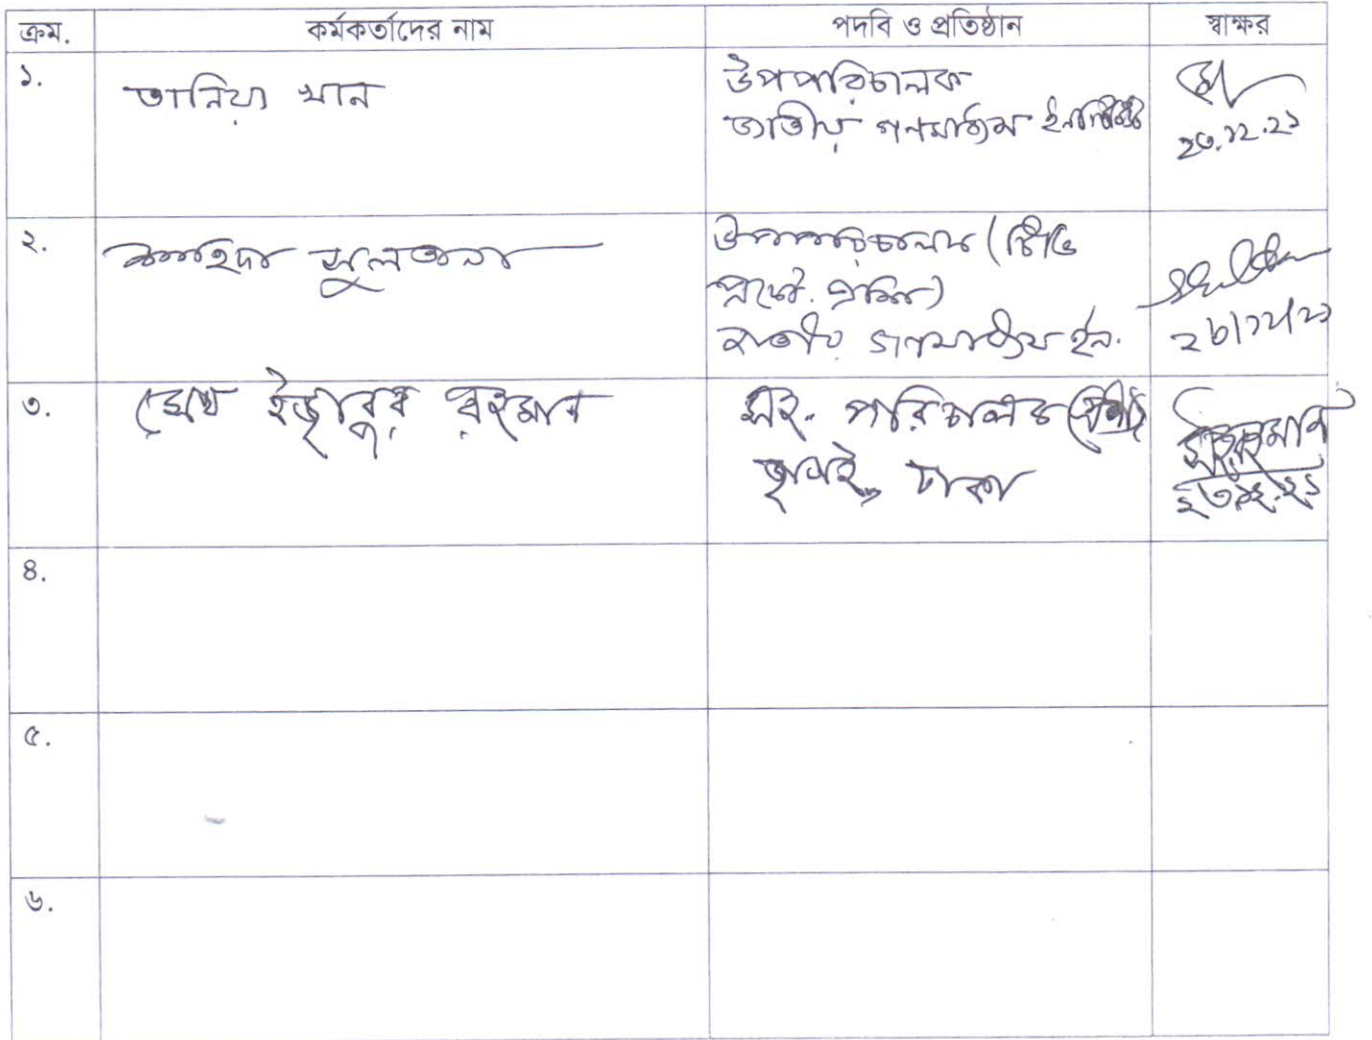 ক্রম. কর্মকর্তাদের নাম পদবি ও প্রতিষ্ঠান স্বাক্ষর
১. তানিয়া খান উপপরিচালক
জাতীয় গণমাধ্যম ইনস্টিটিউট
২৩.১২.২১
২. নাহিদা সুলতানা উপপরিচালক (টিভি
প্রকৌ. প্রশি)
জাতীয় গণমাধ্যম ইন.
২৮/১২/২১
৩. শেখ ইজাবুর রহমান সহ. পরিচালক
জাগই, ঢাকা
২৩.১২.২১
৪.
৫.
৬.